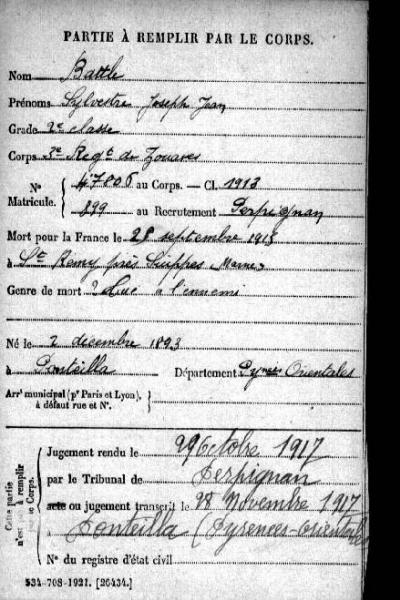 PARTIE À REMPLIR PAR LE CORPS.
Nom Battle
Prénoms Sylvestre Joseph Jean
Grade 2e classe
Corps 3e Regt de Zouaves
No 47006 au Corps. — Cl. 1913
Matricule. 899 au Recrutement Perpignan
Mort pour la France le 28 septembre 1915
à Ste Remy près Suippes Marne
Genre de mort Tué à l'ennemi
Né le 2 decembre 1893
à Ponteilla Département Pynées Orientales
Arrt municipal (pr Paris et Lyon), à défaut rue et No.
Cette partie n'est à remplir par le Corps.
Jugement rendu le 29 Octobre 1917
par le Tribunal de Perpignan
acte ou jugement transcrit le 28 Novembre 1917
à Ponteilla (Pyrénées-Orientales
No du registre d'état civil
534-708-1921. [26434.]